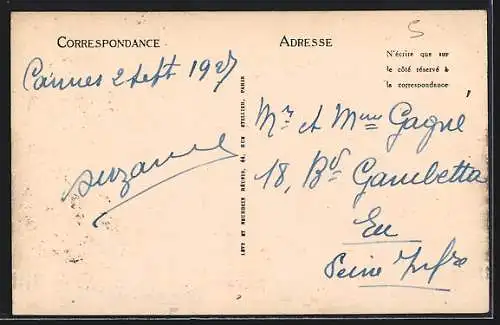 CORRESPONDANCE
Cannes 2 Sept 1927
Suzanne
LEVY ET NEURDEIN RÉUNIS, 44, RUE LETELLIER, PARIS
ADRESSE
5
N'écrire que sur
le côté réservé à
la correspondance
Mr et Mme Gagné
18, Bd Gambetta
Eu
Seine Infre